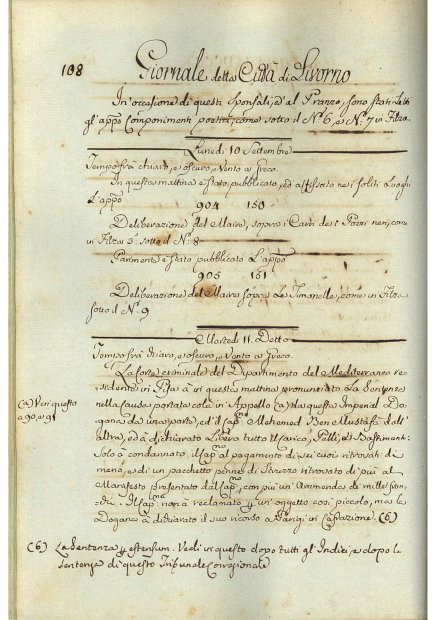 108 Giornale della Città di Livorno
In occasione di questi Sponsali, e al Pranzo, sono stati Letti
gl'app.o Componimenti poetici, come sotto il N.o 6, e N.o 7 in Filza.
Lunedì 10 Settembre
Tempo frà chiaro, e oscuro, e Vento a Greco.
In questa mattina è stato pubblicato, ed affissato nei soliti Luoghi
L'app.o
904 150
Deliberazione del Maire, sopra i Carri dei Pozzi neri, come
in Filza 3.a sotto il N.o 8
Parimente è stato pubblicato L'app.o
905 151
Deliberazione del Maire sopra Le Timonelle, come in Filza
sotto N.o 9
Martedì 11. Detto
Tempo frà chiaro, e oscuro, e Vento a Greco.
La Corte criminale del Dipartimento del Mediterraneo re-
sidente in Pisa à in questa mattina pronunciato La Sentenza
(a) Vedi questo
a 90, e 91
nella Causa portata colà in Appello (a) da questa Imperial Do-
gana da una parte, ed il Cap.no Mohomed Ben Mustafà dall'
altra, ed à dichiarato Libero tutto il carico, Pelli, e Bastimento:
Solo à condannato il Cap.no al pagamento di sei cuoi ritrovati di
meno, e di un pacchetto penne di Struzzo ritrovato di più al
Manifesto presentato dal Cap.no, con più un'Ammenda di mille fran-
chi. Il Cap.no non à reclamato p. un'oggetto così piccolo, ma la
Dogana à dichiarato il suo ricorso a Parigi in Cassazione. (b)
(b) La Sentenza p. extensum. Vedi in questo dopo tutti gl'Indici, e dopo la
Sentenza di questo Tribunale Correzionale